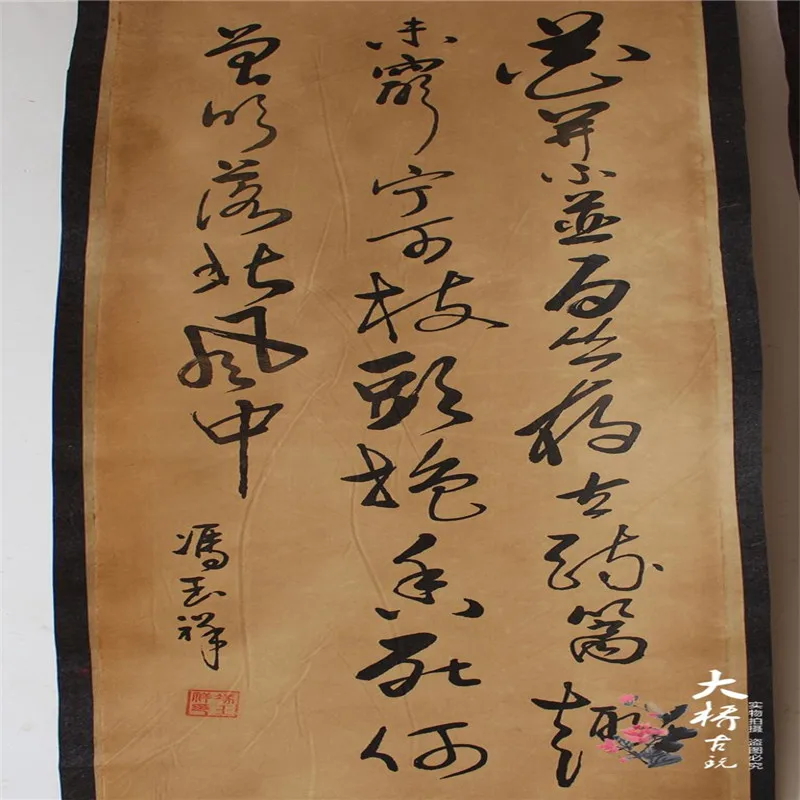 花开不並百丛独立疏篱趣
未窮宁可枝頭抱香死何
曾吹落北風中
馮玉祥
大桥古玩
实物拍摄 盗图必究